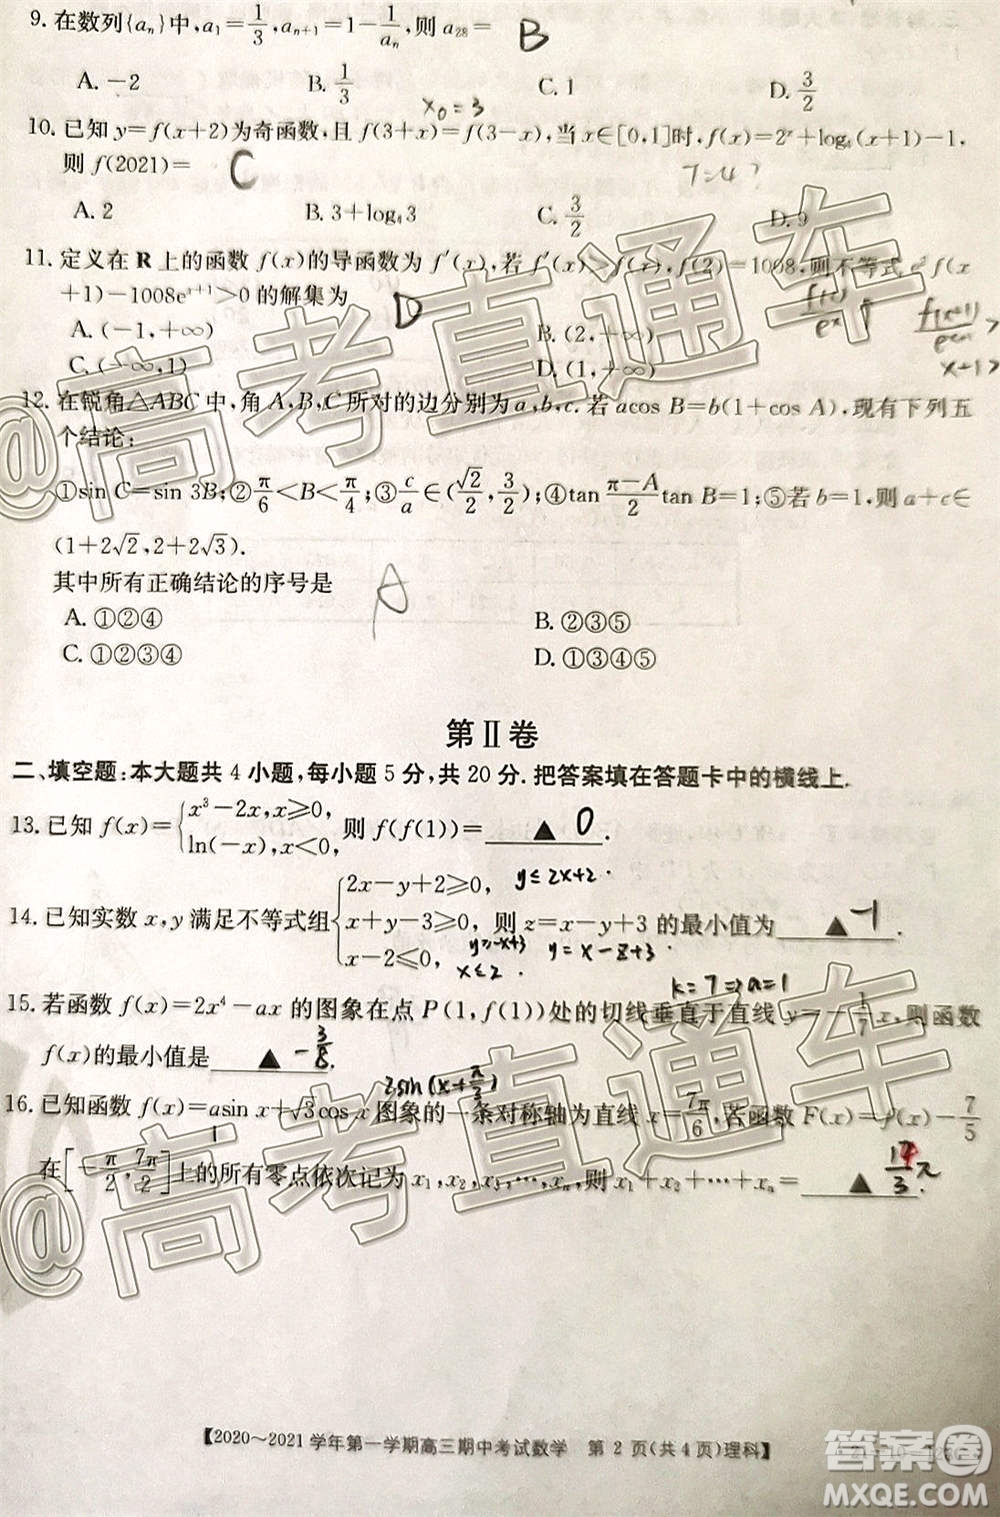 9. 在数列{aₙ}中,a₁=1/3,aₙ₊₁=1-1/aₙ,则 a₂₈= B
A. -2 B. 1/3 C. 1 D. 3/2
x₀=3
10. 已知 y=f(x+2)为奇函数,且 f(3+x)=f(3-x),当 x∈[0,1]时,f(x)=2ˣ+log₄(x+1)-1,
则 f(2021)= C T=4?
A. 2 B. 3+log₄3 C. 3/2 D. 9
11. 定义在 R 上的函数 f(x)的导函数为 f′(x),若 f′(x)>f(x),f(2)=1008,则不等式 e²f(x
+1)-1008eˣ⁺¹>0的解集为 D f(x)/eˣ f(x+1)/eˣ⁺¹ >
A. (-1,+∞) B. (2,+∞)
x+1>
C. (-∞,1) D. (1,+∞)
12. 在锐角△ABC 中,角 A,B,C 所对的边分别为 a,b,c. 若 acos B=b(1+cos A),现有下列五
个结论:
①sin C=sin 3B;②π/6<B<π/4;③c/a∈(√2/2,3/2);④tan (π-A)/2 tan B=1;⑤若 b=1,则 a+c∈
(1+2√2,2+2√3).
其中所有正确结论的序号是 A
A. ①②④ B. ②③⑤
C. ①②③④ D. ①②③⑤
第Ⅱ卷
二、填空题:本大题共 4 小题,每小题 5 分,共 20 分. 把答案填在答题卡中的横线上.
13. 已知 f(x)={x³-2x,x≥0, ln(-x),x<0, 则 f(f(1))= ▲ 0 .
y≤2x+2
14. 已知实数 x,y 满足不等式组{2x-y+2≥0, x+y-3≥0, x-2≤0, 则 z=x-y+3 的最小值为 ▲ -1 .
y≥-x+3 y=x-z+3
x≤2
k=7⇒a=1
15. 若函数 f(x)=2x⁴-ax 的图象在点 P(1,f(1))处的切线垂直于直线 y=-1/7x,则函数
f(x)的最小值是 ▲ -3/8 .
2sin(x+π/3)
16. 已知函数 f(x)=asin x+√3cos x 图象的一条对称轴为直线 x=7π/6,若函数 F(x)=f(x)-7/5
1
在[-π/2,7π/2]上的所有零点依次记为 x₁,x₂,x₃,…,xₙ,则 x₁+x₂+…+xₙ= ▲ π .
【2020~2021 学年第一学期高三期中考试数学 第 2 页(共 4 页)理科】
@高考直通车
@高考直通车
答案圈
MXQE.COM